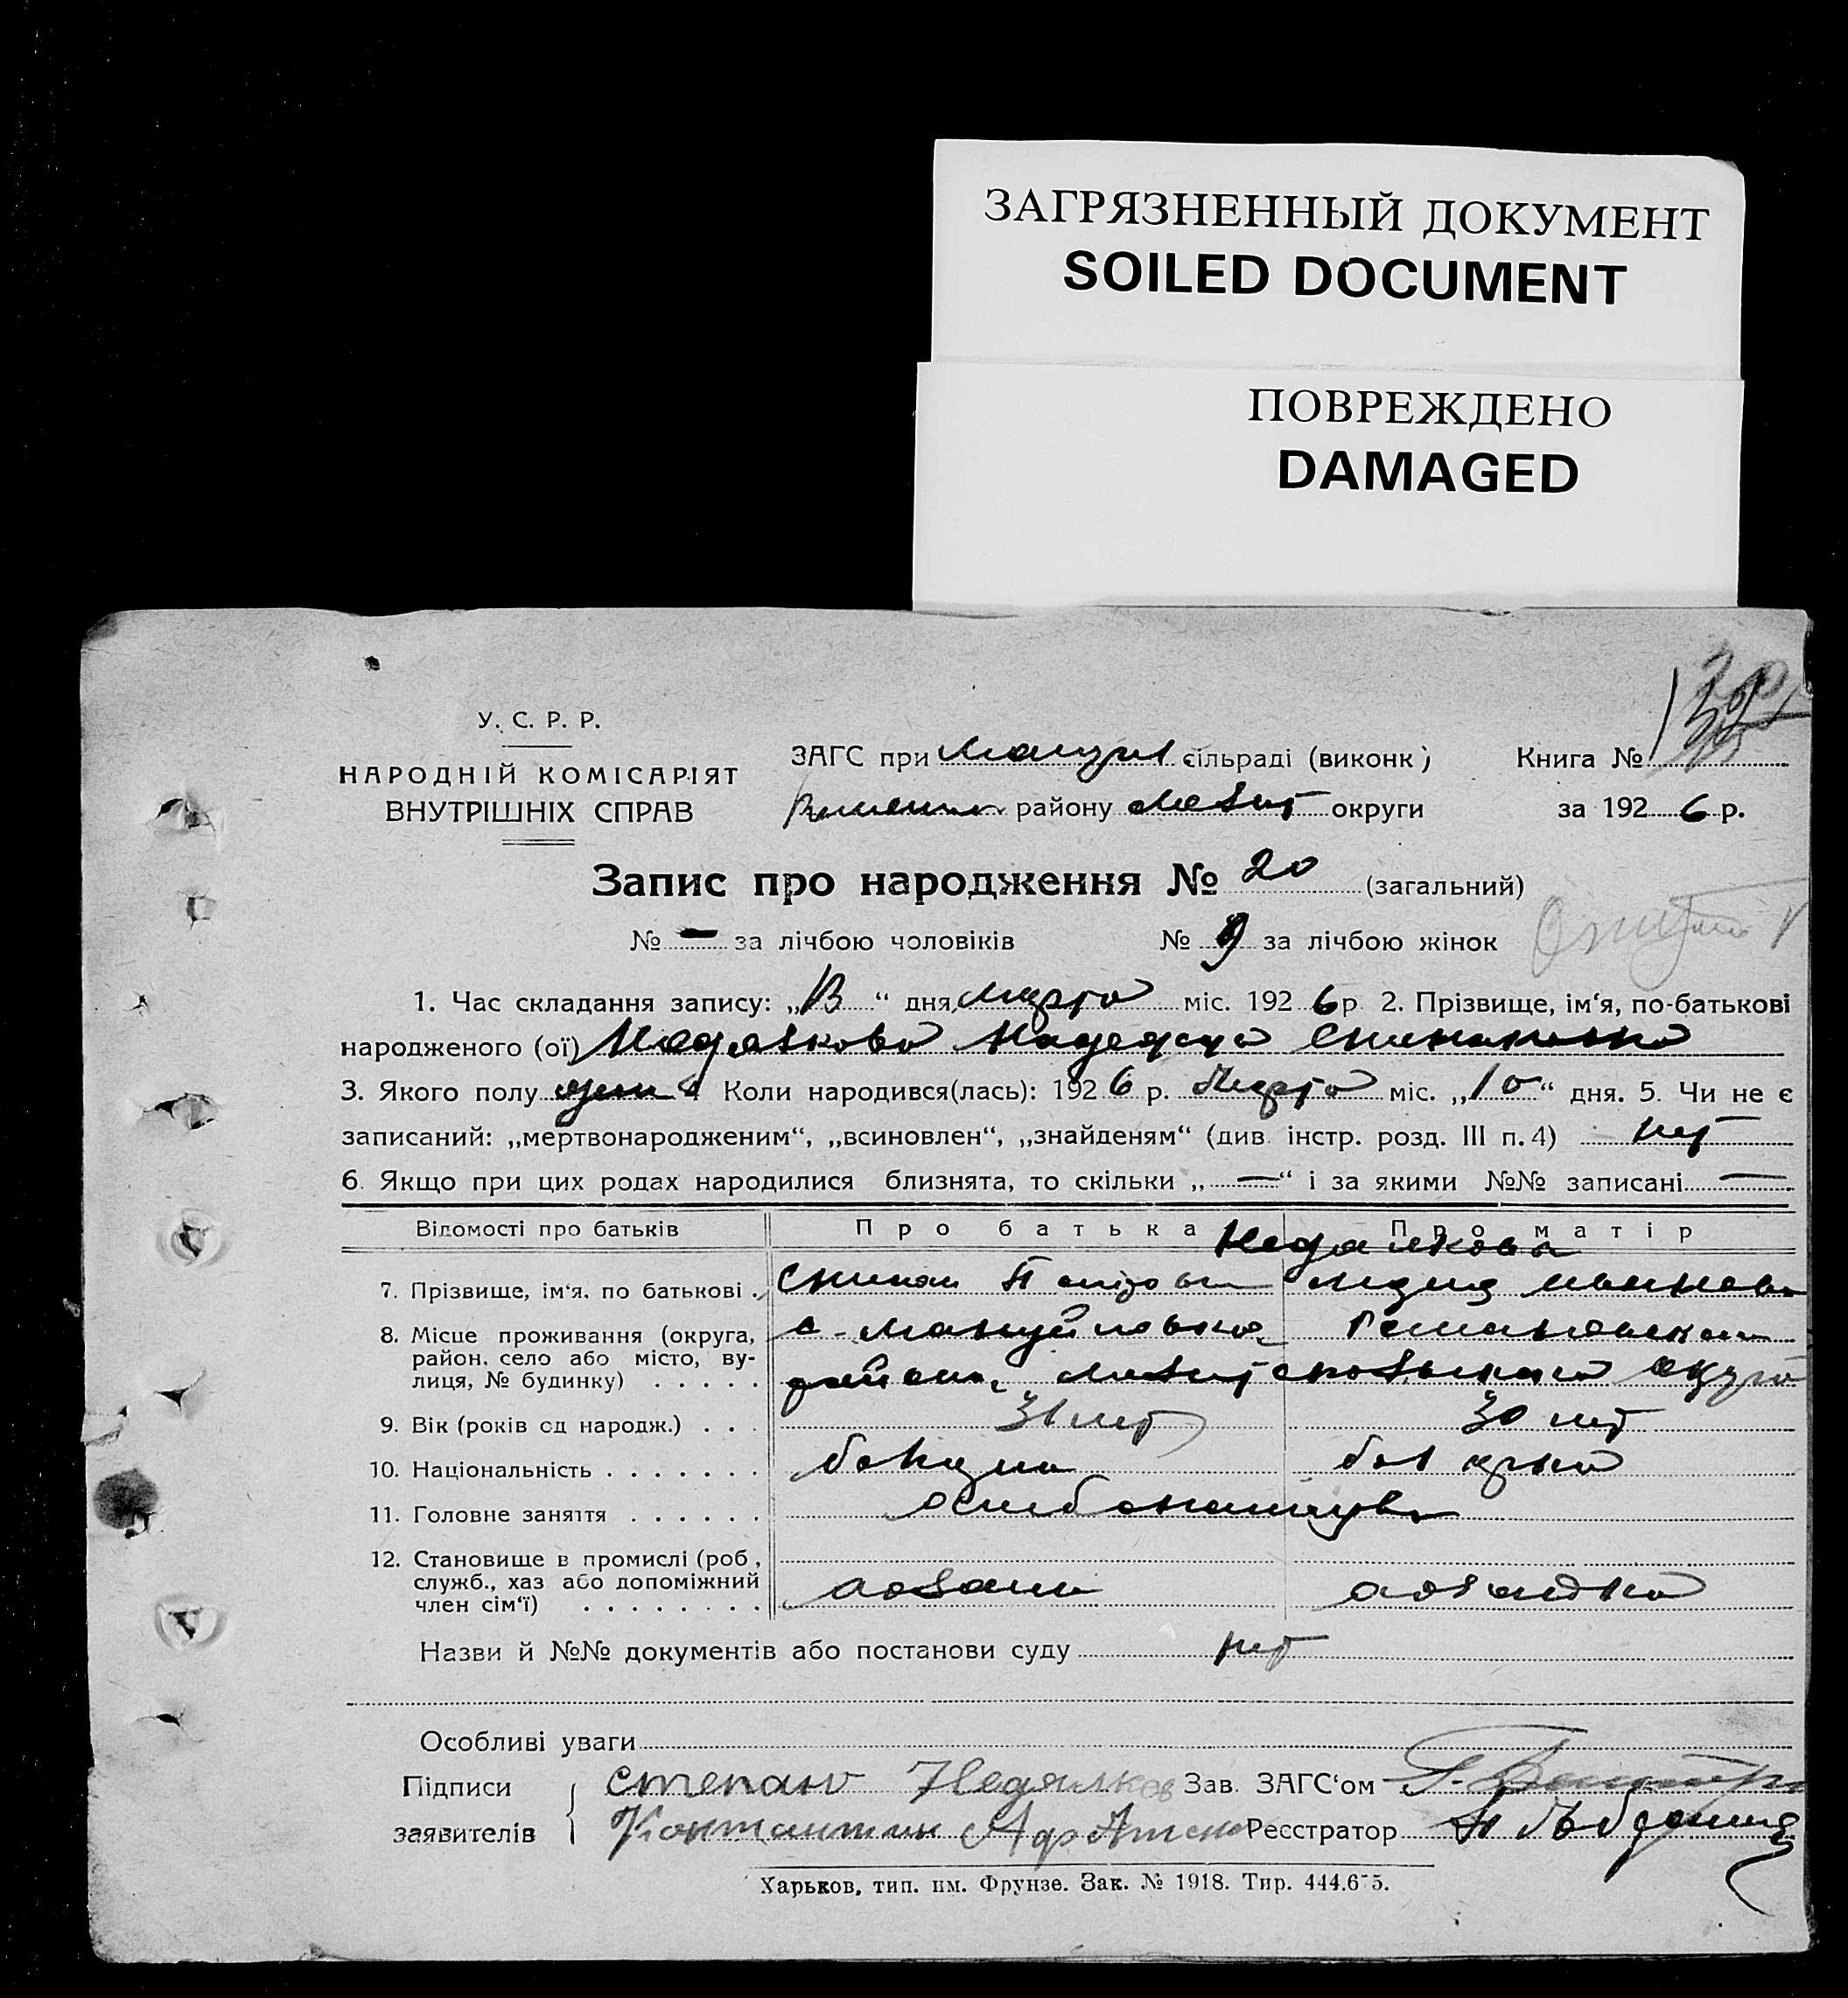 ЗАГРЯЗНЕННЫЙ ДОКУМЕНТ
SOILED DOCUMENT
ПОВРЕЖДЕНО
DAMAGED
У. С. Р. Р.
НАРОДНІЙ КОМІСАРІЯТ
ВНУТРІШНІХ СПРАВ
ЗАГС при сільраді (виконк)
району округи
Книга №
за 1926 р.
Запис про народження № 20 (загальний)
№ — за лічбою чоловіків № 9 за лічбою жінок
1. Час складання запису: „13“ дня марта міс. 1926 р 2. Прізвище, ім‘я, по-батькові
народженого (ої) Недялкова Надежда
3. Якого полу 4 Коли народився(лась): 1926 р. Марта міс. „10“ дня. 5. Чи не є
записаний: „мертвонародженим“, „всиновлен“, „знайденям“ (див. інстр. розд. III п. 4) нет
6. Якщо при цих родах народилися близнята, то скільки „—“ і за якими №№ записані —
Відомості про батьків Про батька Про матір
Недялкова
7. Прізвище, ім‘я, по батькові
8. Місце проживання (округа, с. Мануйловка
район, село або місто, ву-
лиця, № будинку) района, Мелитопольского округа
9. Вік (років од народж.) 31 лет 30 лет
10. Національність
11. Головне заняття
12. Становище в промислі (роб.,
служб., хаз або допоміжний
член сім‘ї) хозяин хозяйка
Назви й №№ документів або постанови суду нет
Особливі уваги
Підписи степан Недялков Зав. ЗАГС‘ом
заявителів Константин Реєстратор
Харьков, тип. им. Фрунзе. Зак. № 1918. Тир. 444.675.